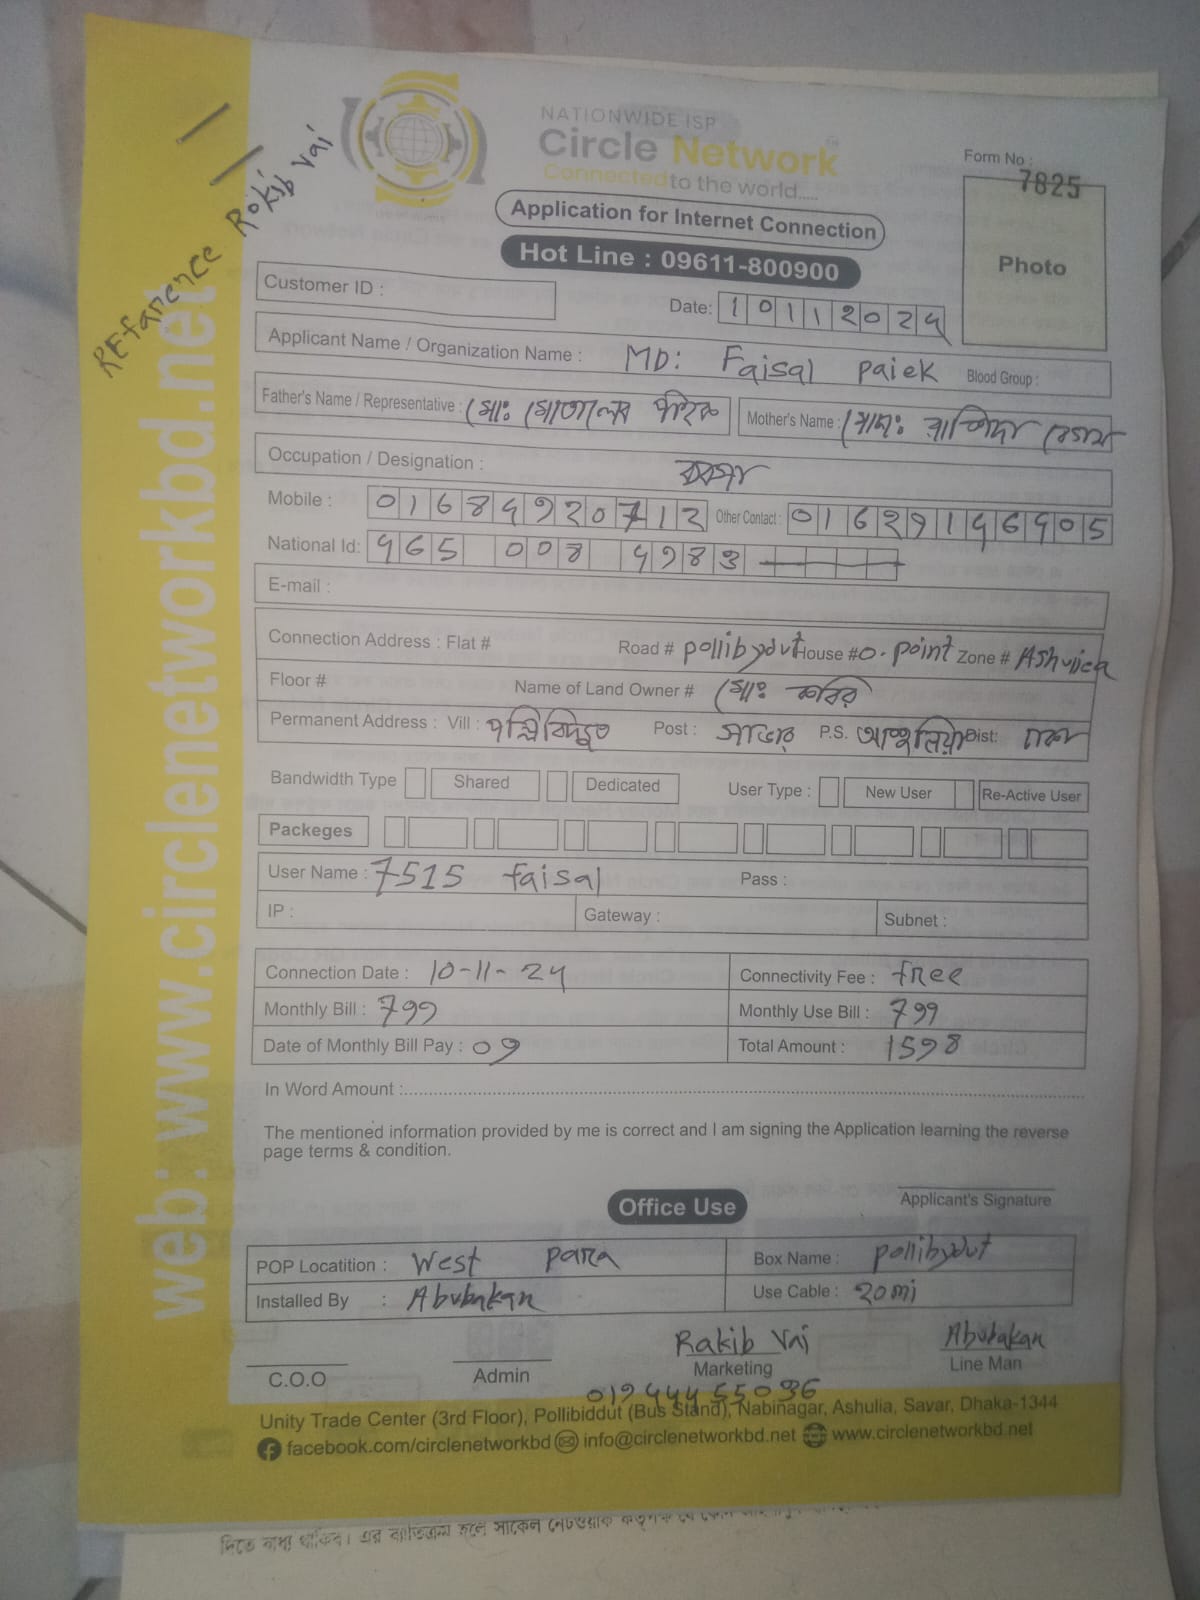 NATIONWIDE ISP
Circle Network
Connected to the world.....
Form No : 7825
Application for Internet Connection
Hot Line : 09611-800900
Photo
REfarence Rokib vai
Customer ID :
Date: 10112024
Applicant Name / Organization Name : MD: Faisal paiek Blood Group :
Father's Name / Representative : মোঃ মোতালেব পাইক Mother's Name : মোছাঃ রাশিদা বেগম
Occupation / Designation :
Mobile : 01684920712 Other Contact : 01629146405
National Id: 465 008 4983
E-mail :
Connection Address : Flat # Road # pollibydut House # 0. point Zone # Ashuliea
Floor # Name of Land Owner # মোঃ কবির
Permanent Address : Vill : পল্লিবিদ্যুত Post : সাভার P.S. আশুলিয়া Dist: ঢাকা
Bandwidth Type Shared Dedicated User Type : New User Re-Active User
Packeges
User Name : 7515 faisal Pass :
IP : Gateway : Subnet :
Connection Date : 10-11-24 Connectivity Fee : free
Monthly Bill : 799 Monthly Use Bill : 799
Date of Monthly Bill Pay : 09 Total Amount : 1598
In Word Amount :
The mentioned information provided by me is correct and I am signing the Application learning the reverse
page terms & condition.
Applicant's Signature
Office Use
POP Locatition : West para Box Name : pollibydut
Installed By : Abubakar Use Cable : 20mi
Rakib vai Abubakar
C.O.O Admin Marketing Line Man
Unity Trade Center (3rd Floor), Pollibiddut (Bus Stand), Nabinagar, Ashulia, Savar, Dhaka-1344
facebook.com/circlenetworkbd info@circlenetworkbd.net www.circlenetworkbd.net
web: www.circlenetworkbd.net